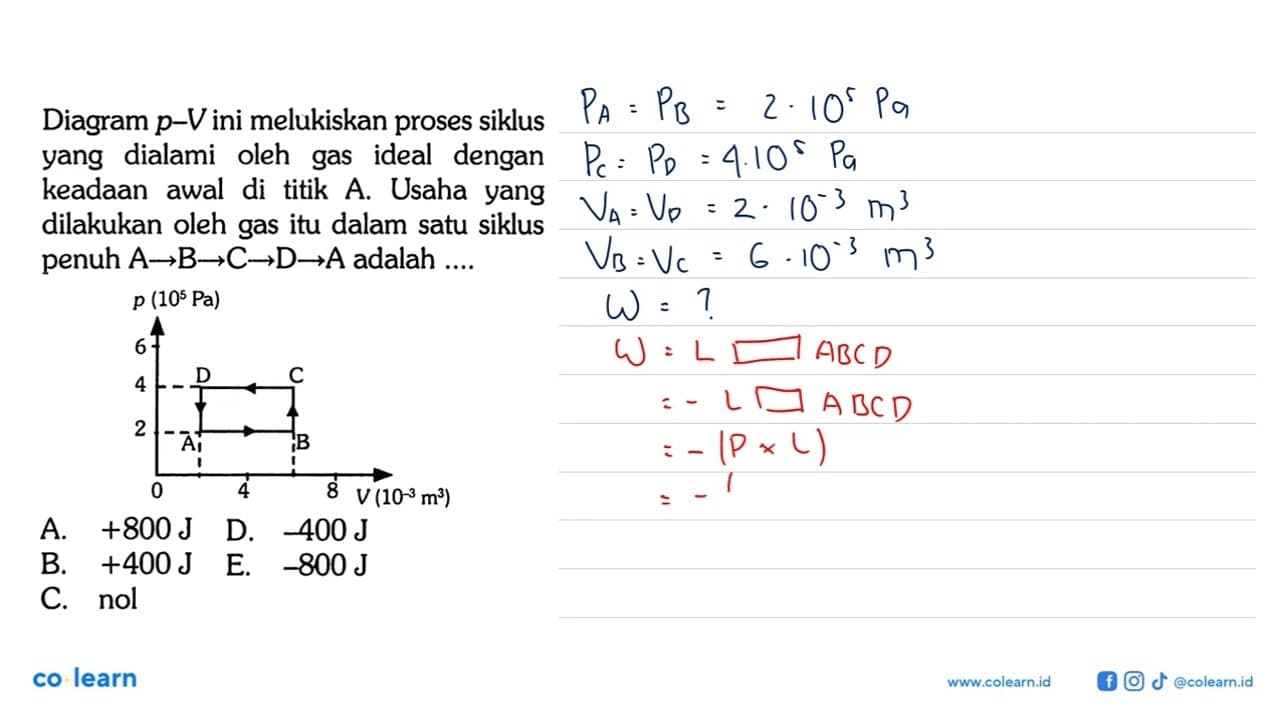 Diagram p–V ini melukiskan proses siklus
yang dialami oleh gas ideal dengan
keadaan awal di titik A. Usaha yang
dilakukan oleh gas itu dalam satu siklus
penuh A→B→C→D→A adalah ....
p (10⁵ Pa)
6
4
2
D
C
A
B
0
4
8
V (10⁻³ m³)
A. +800 J D. –400 J
B. +400 J E. –800 J
C. nol
P_A = P_B = 2 · 10⁵ Pa
P_C = P_D = 4.10⁵ Pa
V_A = V_D = 2 · 10⁻³ m³
V_B = V_C = 6 · 10⁻³ m³
W = ?
W = L ▭ ABCD
= - L ▭ ABCD
= - (P × L)
= - (
co learn
www.colearn.id
@colearn.id